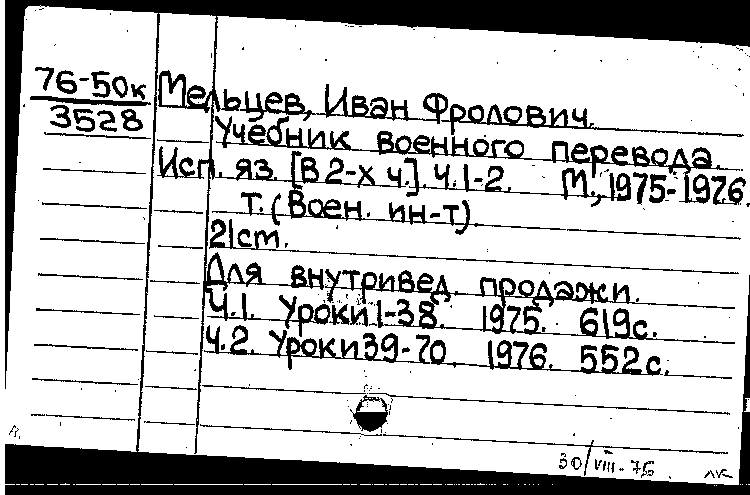 76-50к
3528
Мельцев, Иван Фролович.
Учебник военного перевода.
Исп. яз. [В 2-х ч.]. Ч.1-2. М., 1975-1976.
т. (Воен. ин-т).
21см.
Для внутривед. продажи.
Ч.1. Уроки 1-38. 1975. 619с.
Ч.2. Уроки 39-70. 1976. 552с.
30/VIII-76